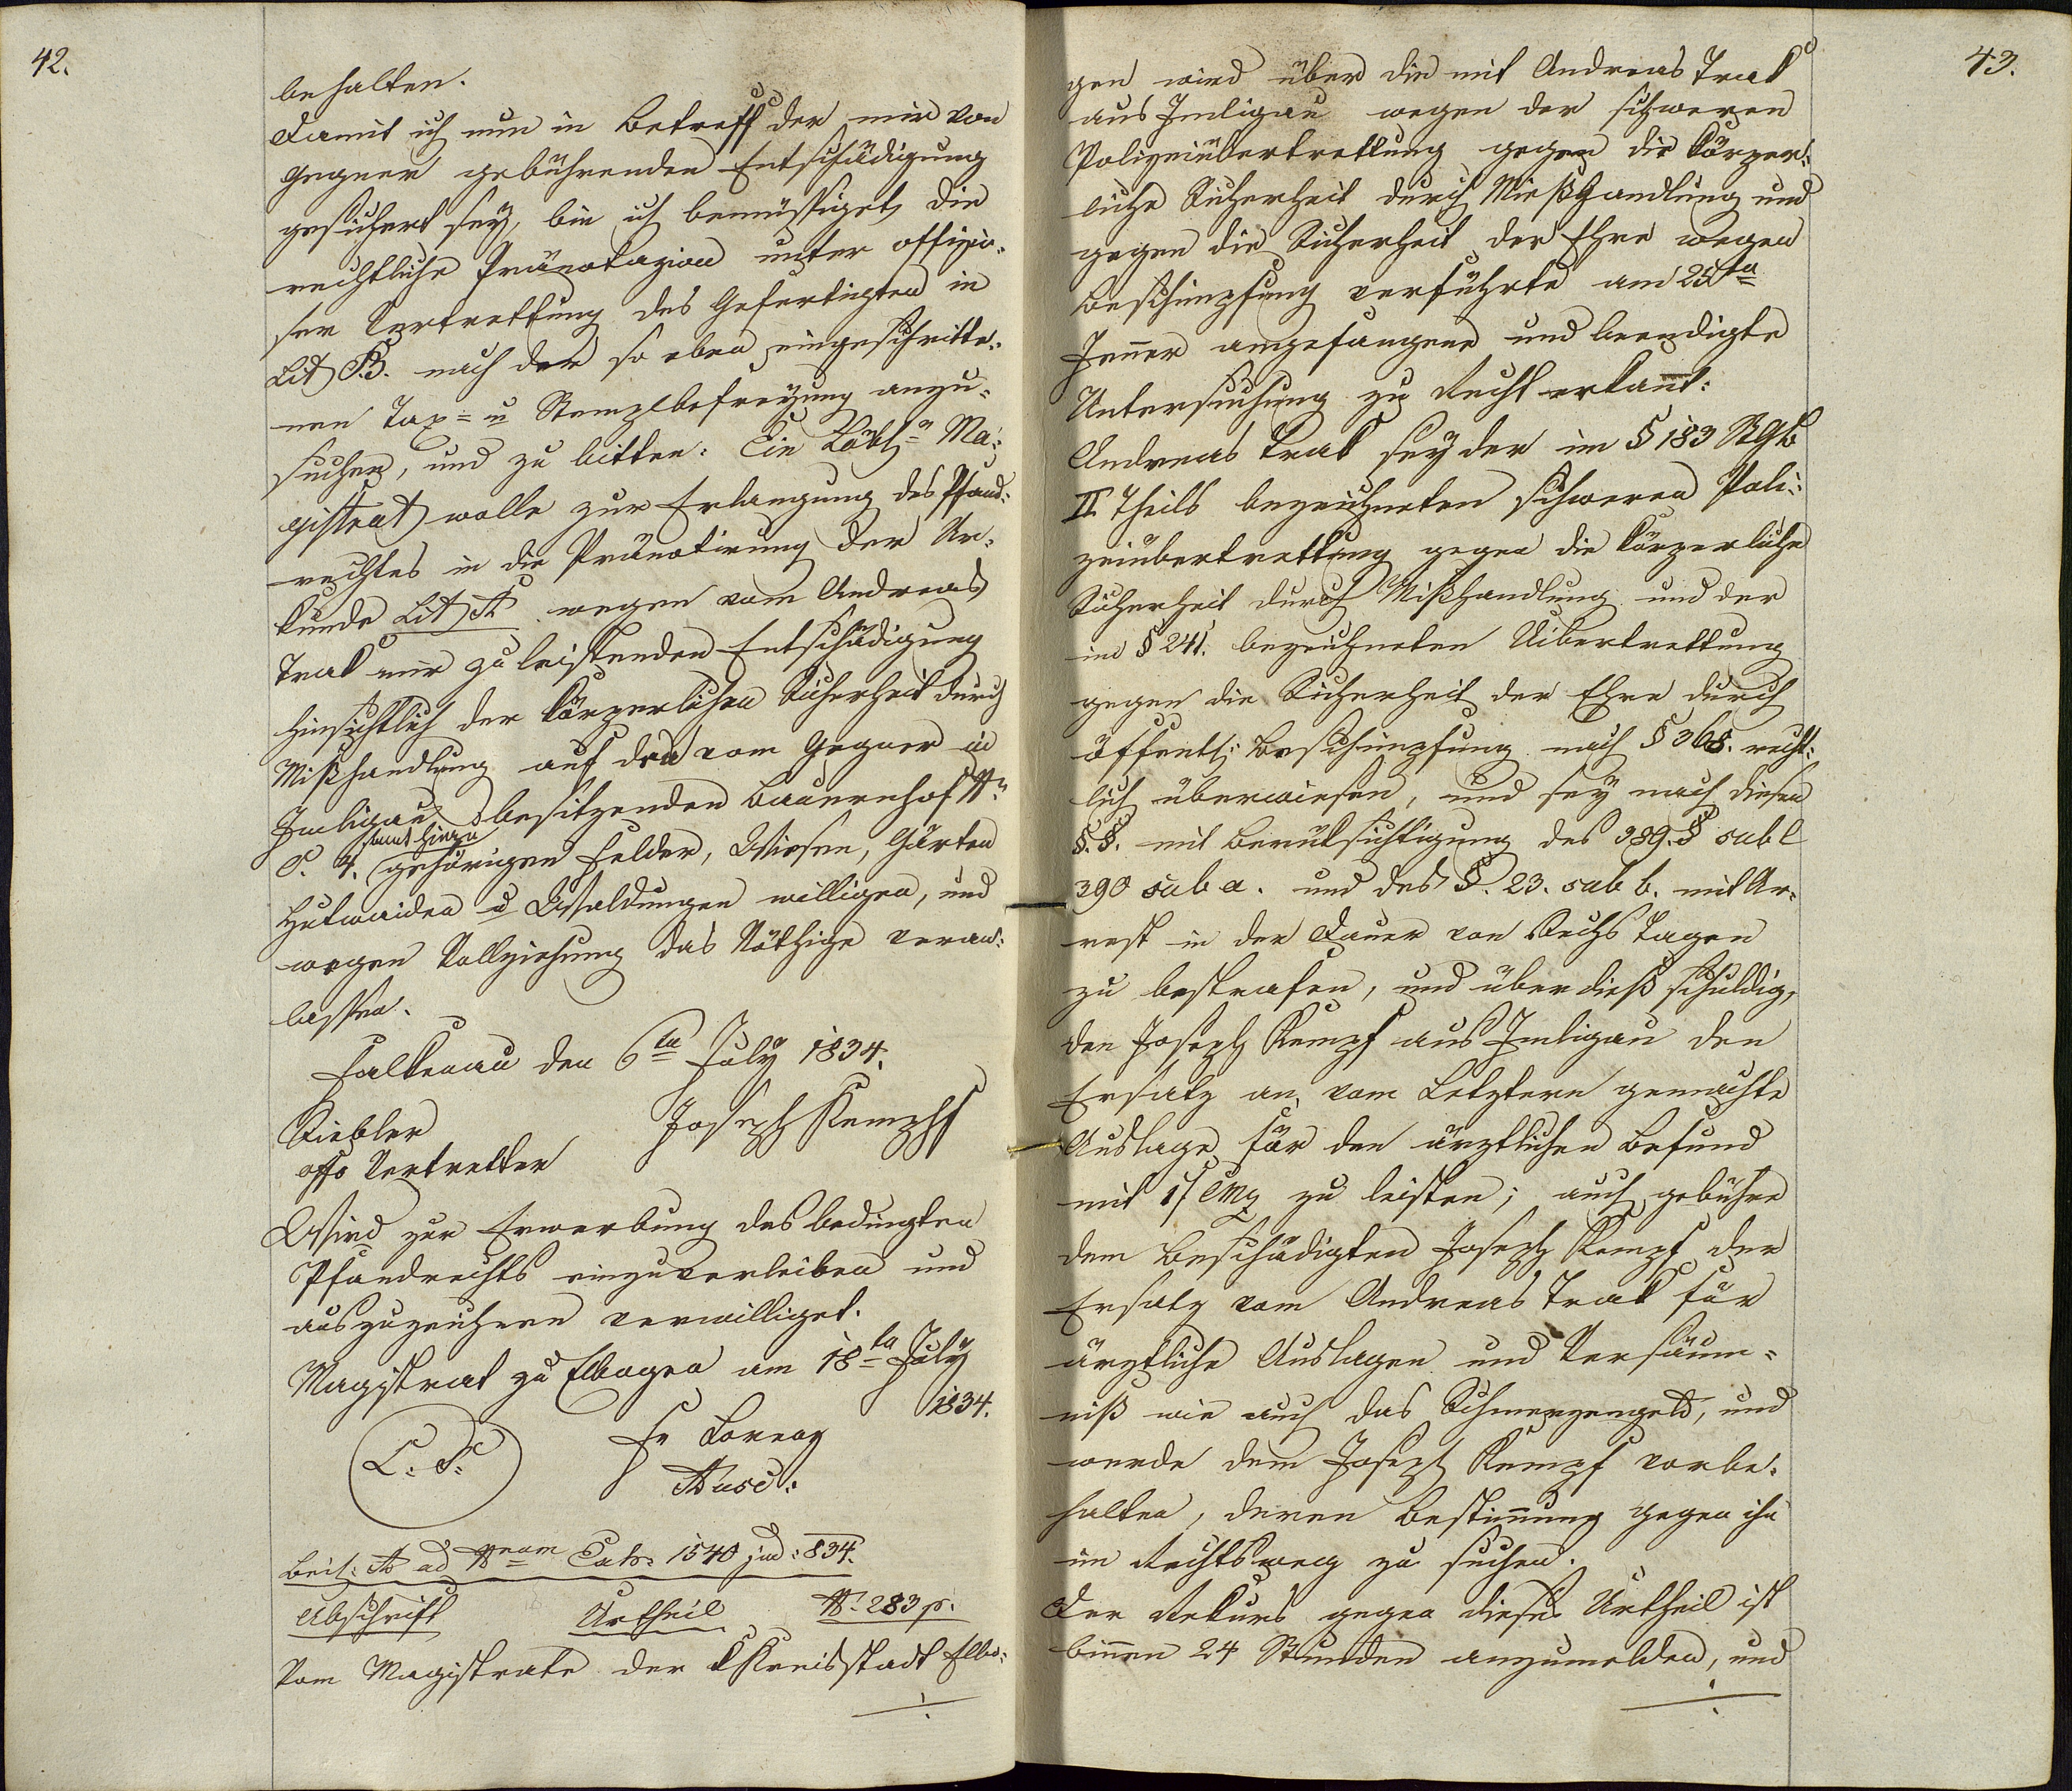 42.
behalten.
Damit ich nun in Betreff der mir von
Gegner gebührenden Entschädigung
gesichert sey, bin ich bemüssiget, die
rechtliche Pränotazion unter offizio-
ser Vertrettung des Gefertigten in
Lit B. nach der so eben eingeschritte-
nen Tax- u Stempelbefreyung anzu-
suchen, und zu bitten: Ein Löbl. Ma-
gistrat wolle zur Erlangung des Pfand-
rechtes in die Pränotirung der Ur-
kunde Lit A wegen vom Andreas
Trak mir zu leistenden Entschädigung
hinsichtlich der körperlichen Sicherheit durch
Mißhandlung auf den vom Gegner in
Imligau besitzenden Bauernhof N.
C. 4. samt hiezu gehörigen Felder, Wiesen, Gärten
Hutweiden u Waldungen willigen, und
wegen Vollziehung das Nöthige veran-
lassen.
Falkenau den 6ten July 1834.
Joseph Kempf
offo Vertretter
Wird zur Erwerbung des bedingten
Pfandrechts einzuverleiben und
auszuzeichnen verwilliget.
Magistrat zu Elbogen am 18ten July
1834.
L. S.
Beil: A ad Nrum Exh: 1540 jud: 834.
Abschrift Urtheil N. 283 p.
Vom Magistrate der Kreisstadt Elbo-
43.
gen wird über die mit Andreas Trak
aus Imligau wegen der schweren
Polizeiübertrettung gegen die körper-
liche Sicherheit durch Mießhandlung und
gegen die Sicherheit der Ehre wegen
Beschimpfung verführte am 25ten
Jenner angefangene und beendigte
Untersuchung zu Recht erkannt:
Andreas Trak sey der im § 183 StGb
II Theils bezeichneten schweren Poli-
zeiübertrettung gegen die körperliche
Sicherheit durch Mißhandlung und der
im § 241. bezeichneten Uibertrettung
gegen die Sicherheit der Ehre durch
öffentl: Beschimpfung nach § 368. recht-
lich überwiesen, und sey nach diesen
§.§. mit Berüksichtigung des 389. § sub l
390 sub a. und des §. 23. sub b. mit Ar-
rest in der Dauer von Sechs Tagen
zu bestrafen, und über dieß schuldig,
den Joseph Kempf aus Imligau den
Ersatz an, vom Letztern gemachte
Auslage für den ärztlichen Befund
mit 1 f CMz zu leisten; auch gebühre
dem Beschädigten Joseph Kempf der
Ersatz vom Andreas Trak für
ärztliche Auslagen und Versäum-
niß wie auch das Schmerzengeld, und
werde dem Joseph Kempf vorbe-
halten, deren Bestimmung gegen ihn
im Rechtsweg zu suchen.
Der Rekurs gegen dieses Urtheil ist
binnen 24 Stunden anzumelden, und